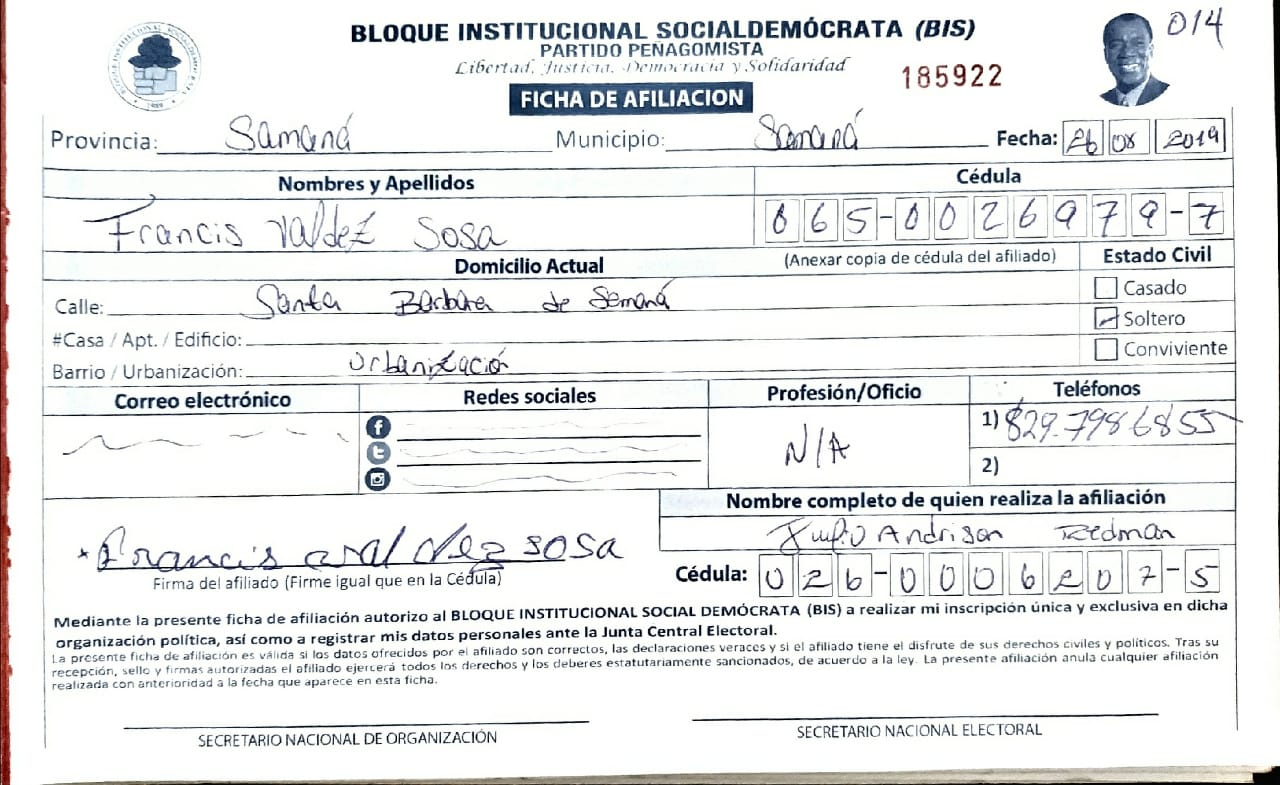 BLOQUE INSTITUCIONAL SOCIALDEMÓCRATA (BIS)
PARTIDO PEÑAGOMISTA
Libertad, Justicia, Democracia y Solidaridad
014
185922
FICHA DE AFILIACION
Provincia: Samaná Municipio: Samaná Fecha: 26 08 2019
Nombres y Apellidos Cédula
Francis Valdez Sosa 065-0026979-7
(Anexar copia de cédula del afiliado)
Domicilio Actual Estado Civil
Calle: Santa Barbara de Semaná Casado
#Casa / Apt. / Edificio: Soltero
Barrio / Urbanización: Urbanización Conviviente
Correo electrónico Redes sociales Profesión/Oficio Teléfonos
N/A 1) 829.7986855
2)
Nombre completo de quien realiza la afiliación
Andrison Redman
Francis valdez sosa
Firma del afiliado (Firme igual que en la Cédula) Cédula: 026-0006207-5
Mediante la presente ficha de afiliación autorizo al BLOQUE INSTITUCIONAL SOCIAL DEMÓCRATA (BIS) a realizar mi inscripción única y exclusiva en dicha
organización política, así como a registrar mis datos personales ante la Junta Central Electoral.
La presente ficha de afiliación es válida si los datos ofrecidos por el afiliado son correctos, las declaraciones veraces y si el afiliado tiene el disfrute de sus derechos civiles y políticos. Tras su
recepción, sello y firmas autorizadas el afiliado ejercerá todos los derechos y los deberes estatutariamente sancionados, de acuerdo a la ley. La presente afiliación anula cualquier afiliación
realizada con anterioridad a la fecha que aparece en esta ficha.
SECRETARIO NACIONAL DE ORGANIZACIÓN SECRETARIO NACIONAL ELECTORAL